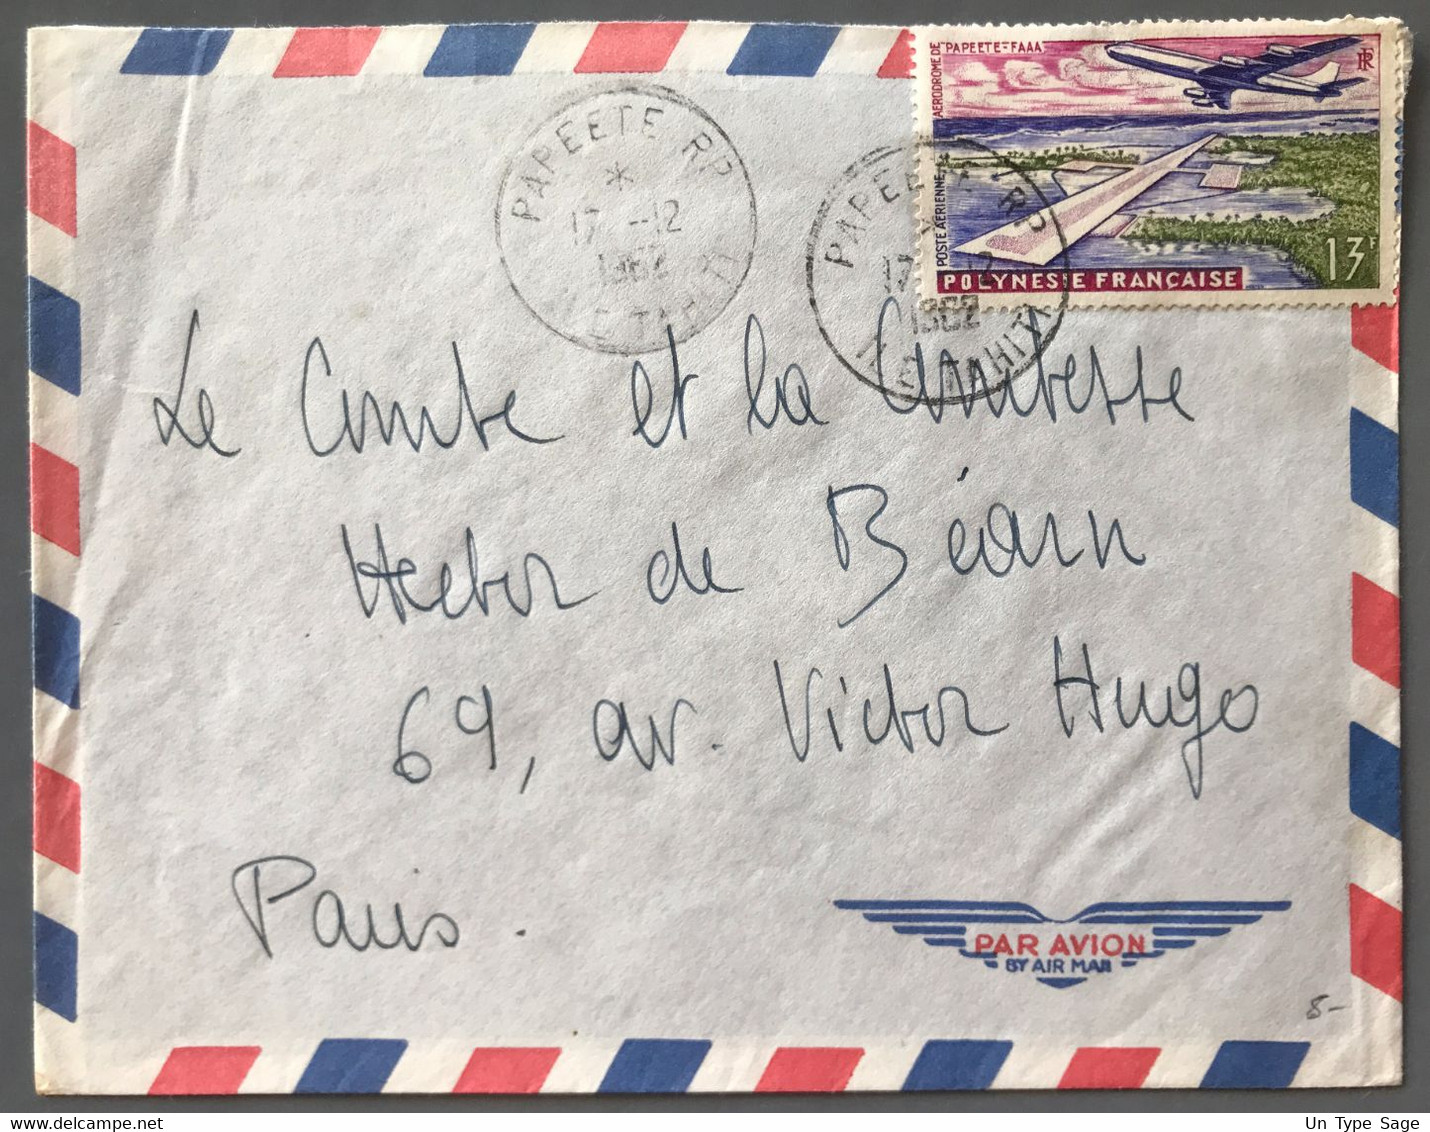 AÉRODROME DE PAPEETE-FAAA
RF
POSTE AÉRIENNE
13F
POLYNESIE FRANÇAISE
PAPEETE RP
17 -12
1962
ILE TAHITI
PAPEETE RP
17 -12
1962
ILE TAHITI
Le Comte et la Comtesse
Hector de Béarn
69, av. Victor Hugo
Paris.
PAR AVION
BY AIR MAIL
8-
Un Type Sage